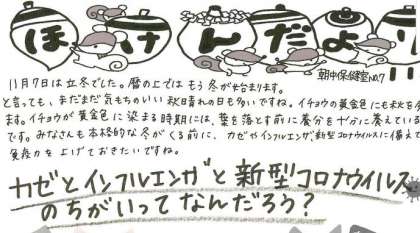 ほけんだより
朝中保健室No.7
11月7日は立冬でした。暦の上ではもう冬が始まります。
と言っても、まだまだ気もちのいい秋晴れの日も多いですね。イチョウの黄金色にも秋を
ます。イチョウが黄金色に染まる時期には、葉を落とす前に養分を十分に蓄えている
です。みなさんも本格的な冬がくる前に、カゼやインフルエンザ、新型コロナウイルスに備えて
免疫力を上げておきたいですね。
カゼとインフルエンザと新型コロナウイルス
のちがいってなんだろう？